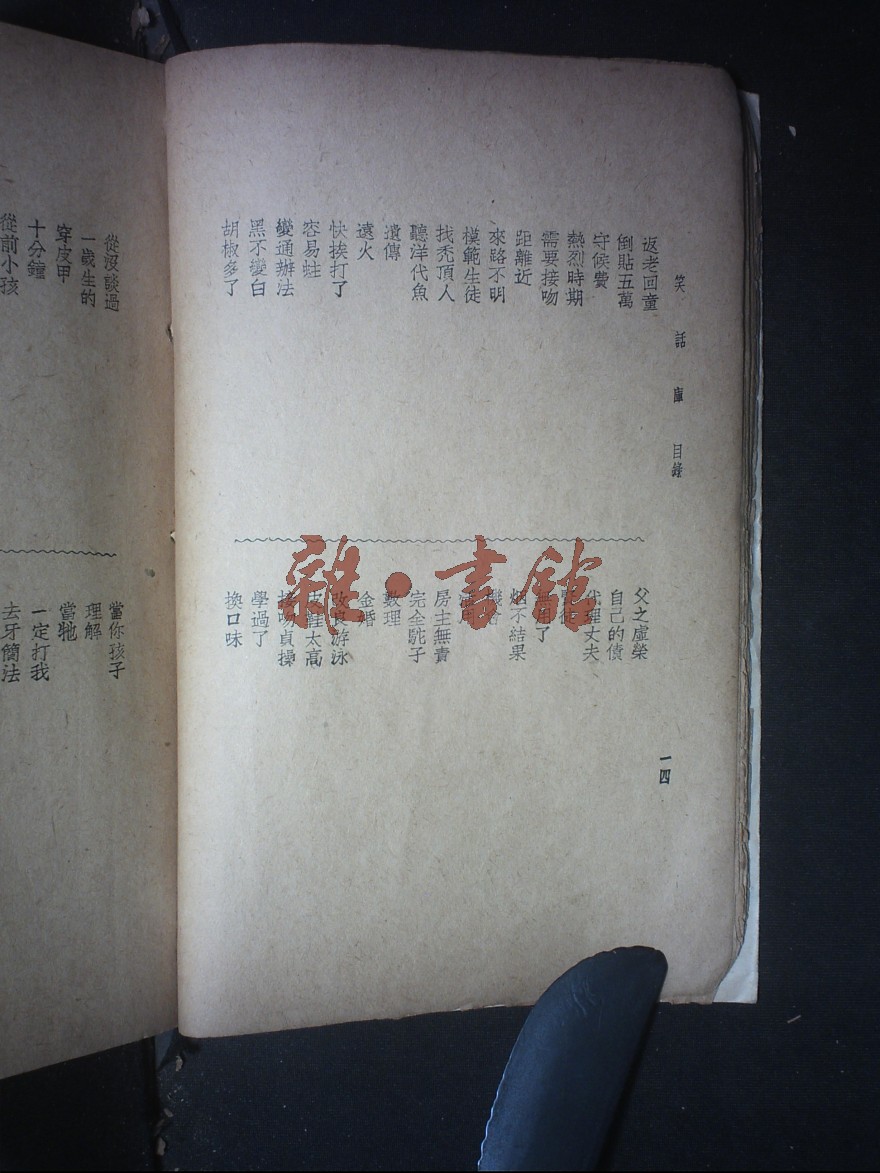 笑話庫 目錄
返老回童
倒貼五萬
守候費
熱烈時期
需要接吻
距離近
來路不明
模範生徒
找禿頂人
聽洋代魚
遺傳
遠火
快挨打了
容易蛀
變通辦法
黑不變白
胡椒多了
父之虛榮
自己的債
代理丈夫
烟不結果
房主無責
完全駝子
數理
金婚
改良游泳
皮鞋太高
接吻貞操
學過了
換口味
一四
從沒談過
一歲生的
穿皮甲
十分鐘
從前小孩
當你孩子
理解
當牠
一定打我
去牙簡法
雜·書館